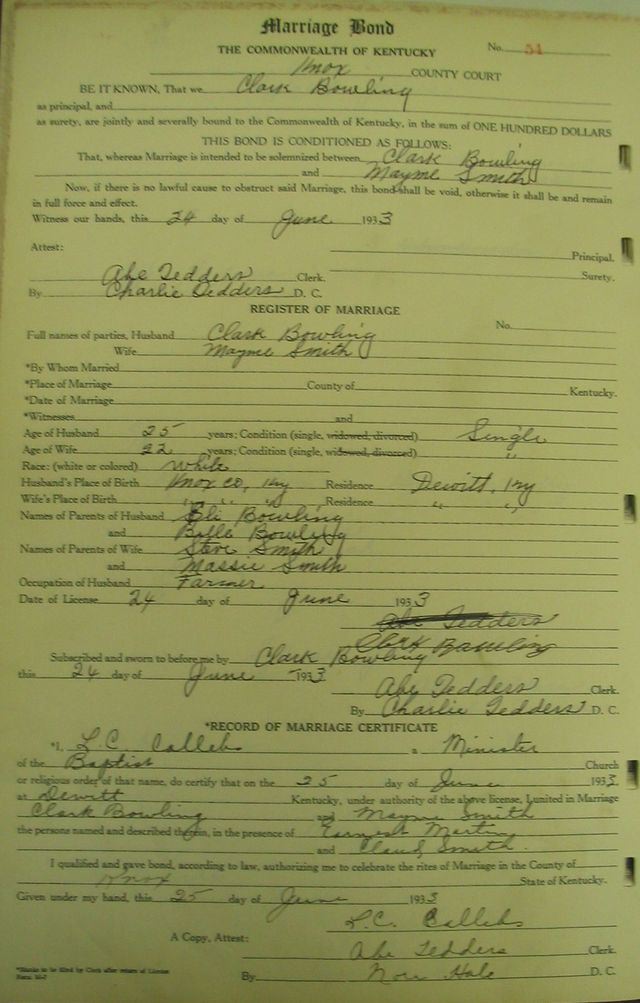 Marriage Bond
THE COMMONWEALTH OF KENTUCKY
No. 54
Knox COUNTY COURT
BE IT KNOWN, That we Clark Bowling
as principal, and
as surety, are jointly and severally bound to the Commonwealth of Kentucky, in the sum of ONE HUNDRED DOLLARS
THIS BOND IS CONDITIONED AS FOLLOWS:
That, whereas Marriage is intended to be solemnized between Clark Bowling
and Mayme Smith
Now, if there is no lawful cause to obstruct said Marriage, this bond shall be void, otherwise it shall be and remain
in full force and effect.
Witness our hands, this 24 day of June 1933
Attest:
Principal.
Abe Tedders Clerk. Surety.
By Charlie Tedders D. C.
REGISTER OF MARRIAGE
No.
Full names of parties, Husband Clark Bowling
Wife Mayme Smith
*By Whom Married
*Place of Marriage County of Kentucky.
*Date of Marriage
*Witnesses and
Age of Husband 25 years; Condition (single, widowed, divorced) Single
Age of Wife 22 years; Condition (single, widowed, divorced) "
Race: (white or colored) white
Husband's Place of Birth Knox co, Ky Residence Dewitt, Ky
Wife's Place of Birth " " " Residence " "
Names of Parents of Husband Eli Bowling
and Bille Bowling
Names of Parents of Wife Steve Smith
and Massie Smith
Occupation of Husband Farmer
Date of License 24 day of June 1933
Abe Tedders
Clark Bowling
Subscribed and sworn to before me by Clark Bowling
this 24 day of June 1933
Abe Tedders Clerk.
By Charlie Tedders D. C.
*RECORD OF MARRIAGE CERTIFICATE
*I, L.C. Callebs a Minister
of the Baptist Church
or religious order of that name, do certify that on the 25 day of June 1933
at Dewitt Kentucky, under authority of the above license, I united in Marriage
Clark Bowling and Mayme Smith
the persons named and described therein, in the presence of Earnest Martin
and Claud Smith.
I qualified and gave bond, according to law, authorizing me to celebrate the rites of Marriage in the County of
Knox State of Kentucky.
Given under my hand, this 25 day of June 1933
L.C. Callebs
A Copy, Attest:
Abe Tedders Clerk.
By Hale D. C.
*Blanks to be filed by Clerk after return of License